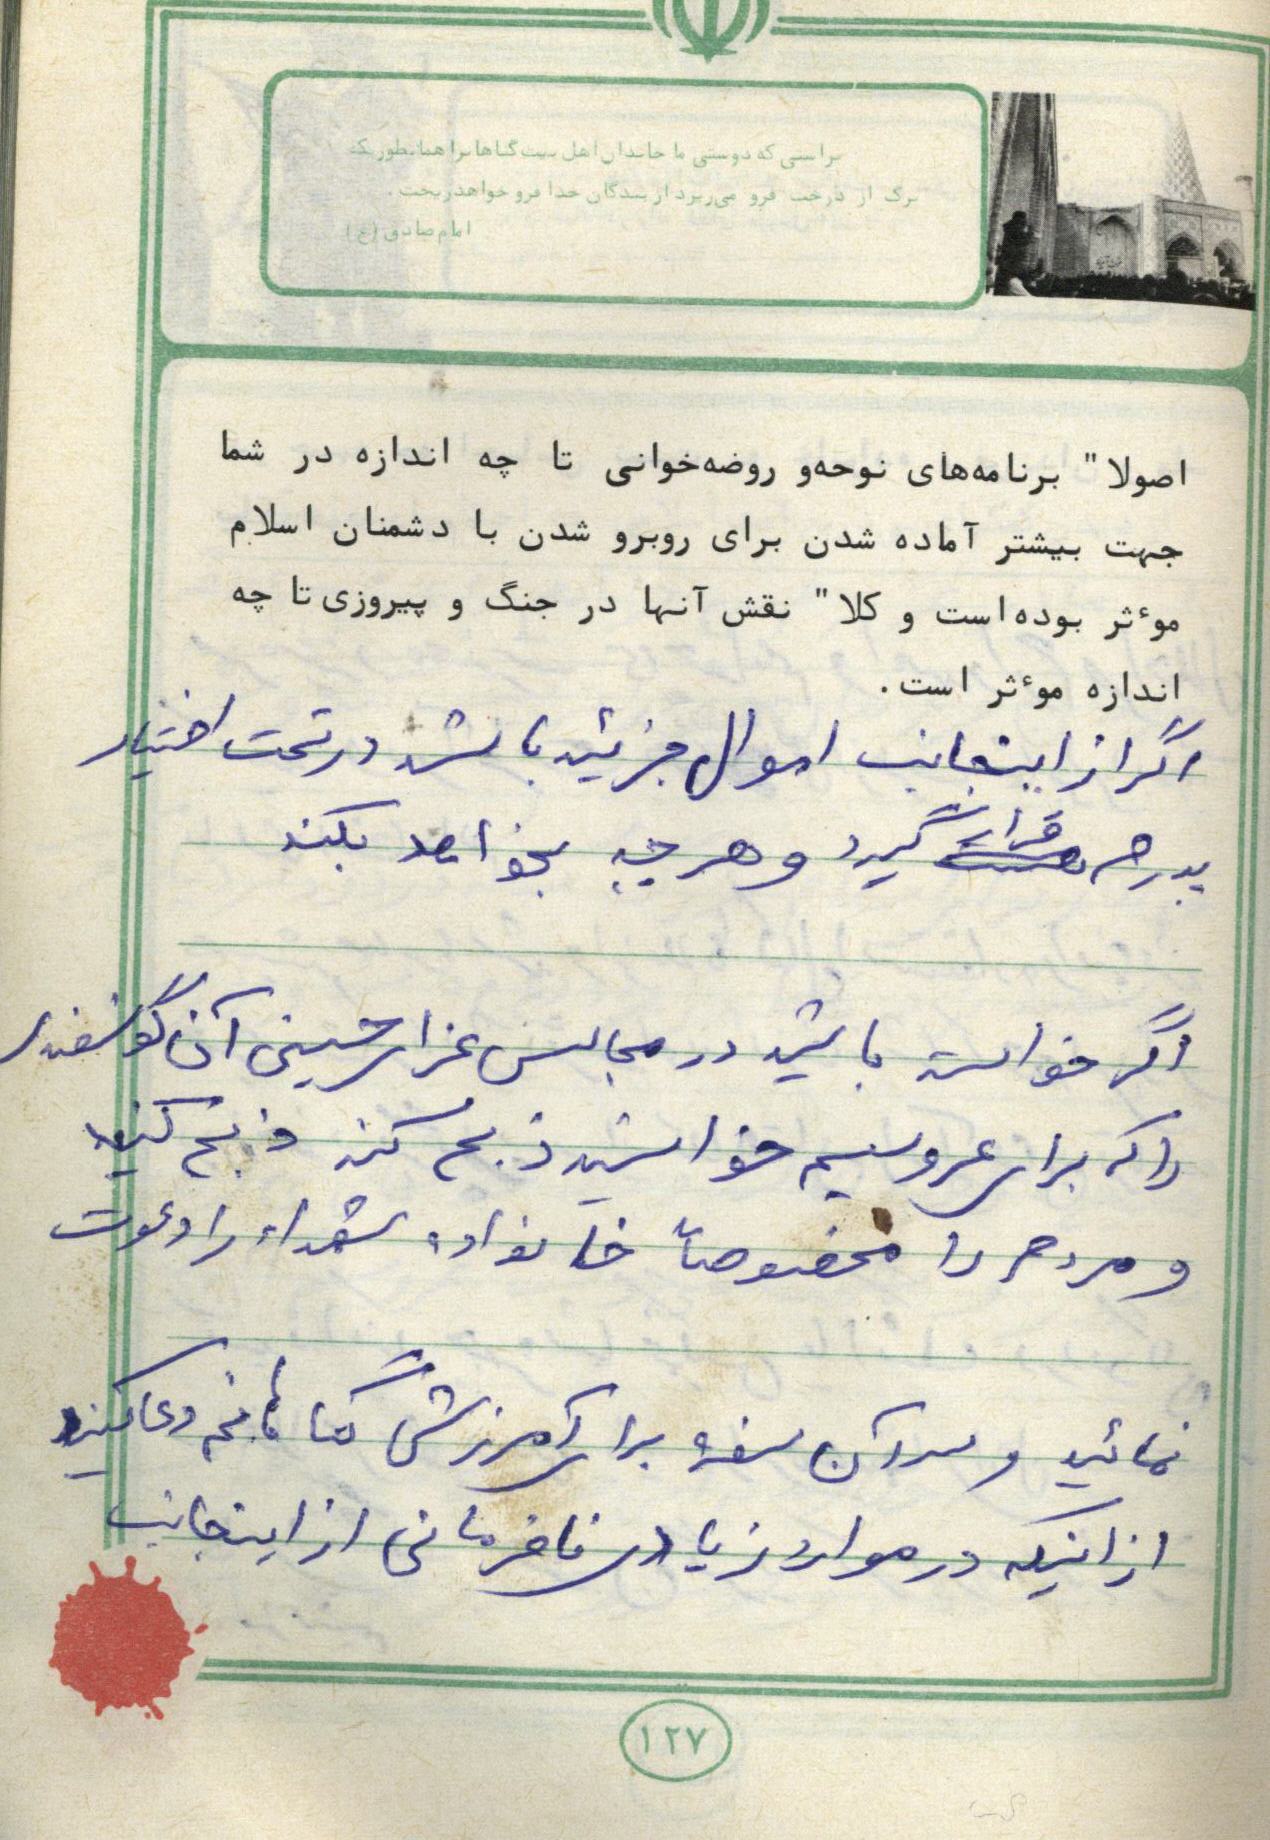 براستی که دوستی ما خاندان اهل بیت گناها نرا همانطوریکه
برگ از درخت فرو می‌ریزد از بندگان خدا فرو خواهد ریخت .
امام صادق (ع)
اصولا" برنامه‌های نوحه‌و روضه‌خوانی تا چه اندازه در شما
جهت بیشتر آماده شدن برای روبرو شدن با دشمنان اسلام
موٴثر بوده‌است و کلا" نقش آنها در جنگ و پیروزی تا چه
اندازه موٴثر است .
اگر از اینجانب اموال جزئی باشد در تحت اختیار
پدرم قرار گیرد و هر چیه بخواهد بکند
اگر خواسته باشید در مجالس عزای حسینی آن گوسفندی
را که برای عروسیم خواستید ذبح کنید ذبح کنید
و مردم را مخصوصاً خانواده شهداء را دعوت
نمائید و سر آن سفره برای آمرزش گناهانم دعا کنید
از اینکه در موارد زیادی نافرمانی از اینجانب
۱۲۷